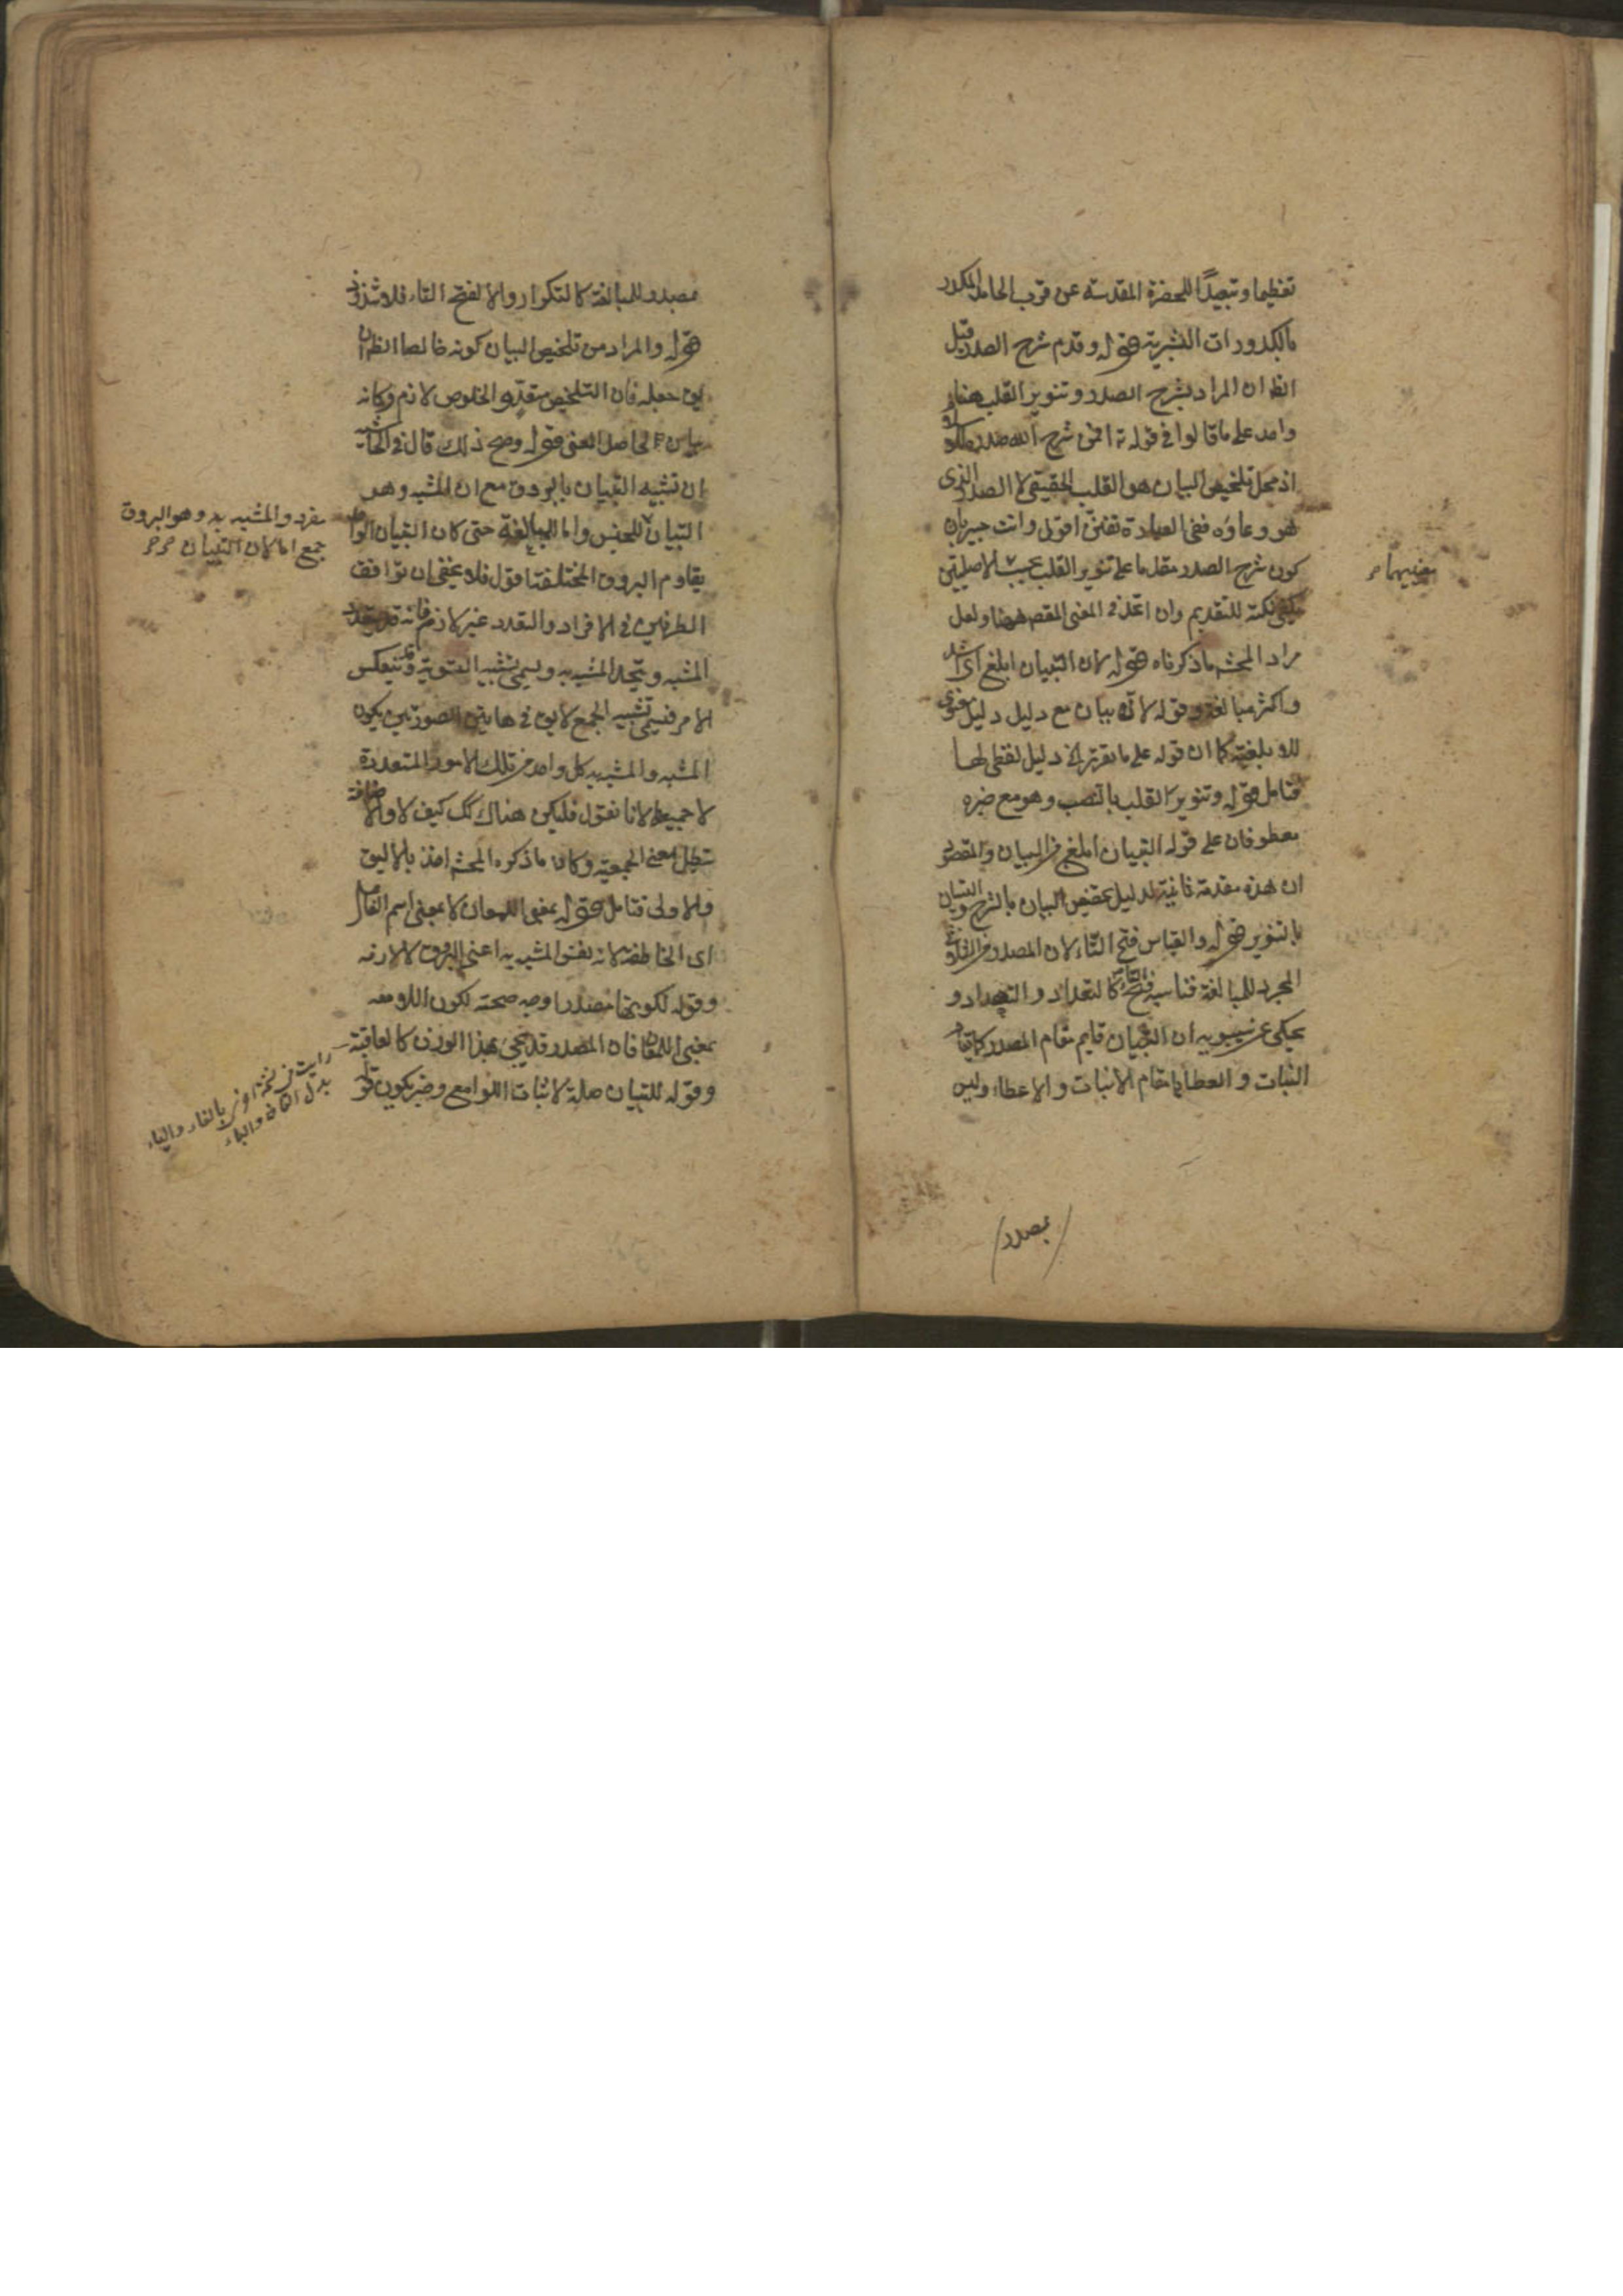 تعظيما وتبعيدًا للحضرة المقدسة عن قرب الحامد المكدر
بالكدورات البشرية قوله وقدم شرح الصدر قيل
الظ ان المراد بشرح الصدر وتنوير القلب هنا
واحد على ما قالوا في قوله تع افمن شرح الله صدره للاسلام
اذ محل تلخيص البيان هو القلب الحقيقي لا الصدر الذي
هو وعاؤه ففي العبارة تفنن اقول وانت خبير بان
كون شرح الصدر مقدما على تنوير القلب بحسب الاصليين
معنييهما
يكفي نكتة للتقديم وان اتحد في المعنى المقصد ههنا ولعل
مراد المحشي ما ذكرناه قوله لان التبيان ابلغ اى اشد
واكثر مبالغة وقوله لانه بيان مع دليل دليل معنوى
للابلغية كما ان قوله على ما تقرر الخ دليل لفظى لها
فتامل قوله وتنوير القلب بالنصب وهو مع خبره
معطوفان على قوله التبيان ابلغ من البيان والمقصود
ان هذه مقدمة ثانية لدليل تخصيص البيان بالشرح والتبيان
بالتنوير قوله والقياس فتح التاء لان المصدر من الثلاثى
المجرد للمبالغة قياسه فتح التاء كالتعداد و
يحكى عن سيبويه ان التبيان قايم مقام المصدر كما قام
النبات والعطا مقام الانبات والاعطاء وليس
بمصدر
بمصدر للمبالغة كالتكرار والا لفتح التاء فلا شذوذ
قوله والمراد من تلخيص البيان كونه خالصا الظ ان
جعله فان التلخيص متعد والخلوص لازم وكانه
الحاصل المعنى قوله وصح ذلك قال في الحاشية
ان تشبيه التبيان بالبروق مع ان المشبه وهو
مفرد والمشبه به وهو البروق
جمع اما لان التبيان
التبيان للجنس واما للمبالغة حتى كان التبيان الواحد
يقاوم البروق المختلفة اقول فلا يخفى ان توافق
الطرفين في الافراد والتعدد غير لازم فانه قد يتعدد
المشبه ويتحد المشبه به ويسمى تشبيه التسوية وقد ينعكس
الامر فيسمى تشبيه الجمع لايق في هاتين الصورتين يكون
المشبه والمشبه به كل واحد من تلك الامور المتعددة
لا جميعها لانا نقول فليكن هناك كك كيف لا والاضافة
تبطل معنى الجمعية وكان ما ذكره المحشي اخذ بالاليق
والاولى فتامل قوله بمعنى اللمعان لا بمعنى اسم الفاعل
اى الخاطفة لانه نفس المشبه به اعنى البروق لا لازمه
وقوله لكونها مصدرا وجه صحته لكون اللامعه
بمعنى اللمعان فان المصدر قد يجئ بهذا الوزن كالعاقبة
وقوله للتبيان صلة لاثبات اللوامع وخبر يكون قوله
رايت في نسخة بالفاء والياء
بدل القاف والباء